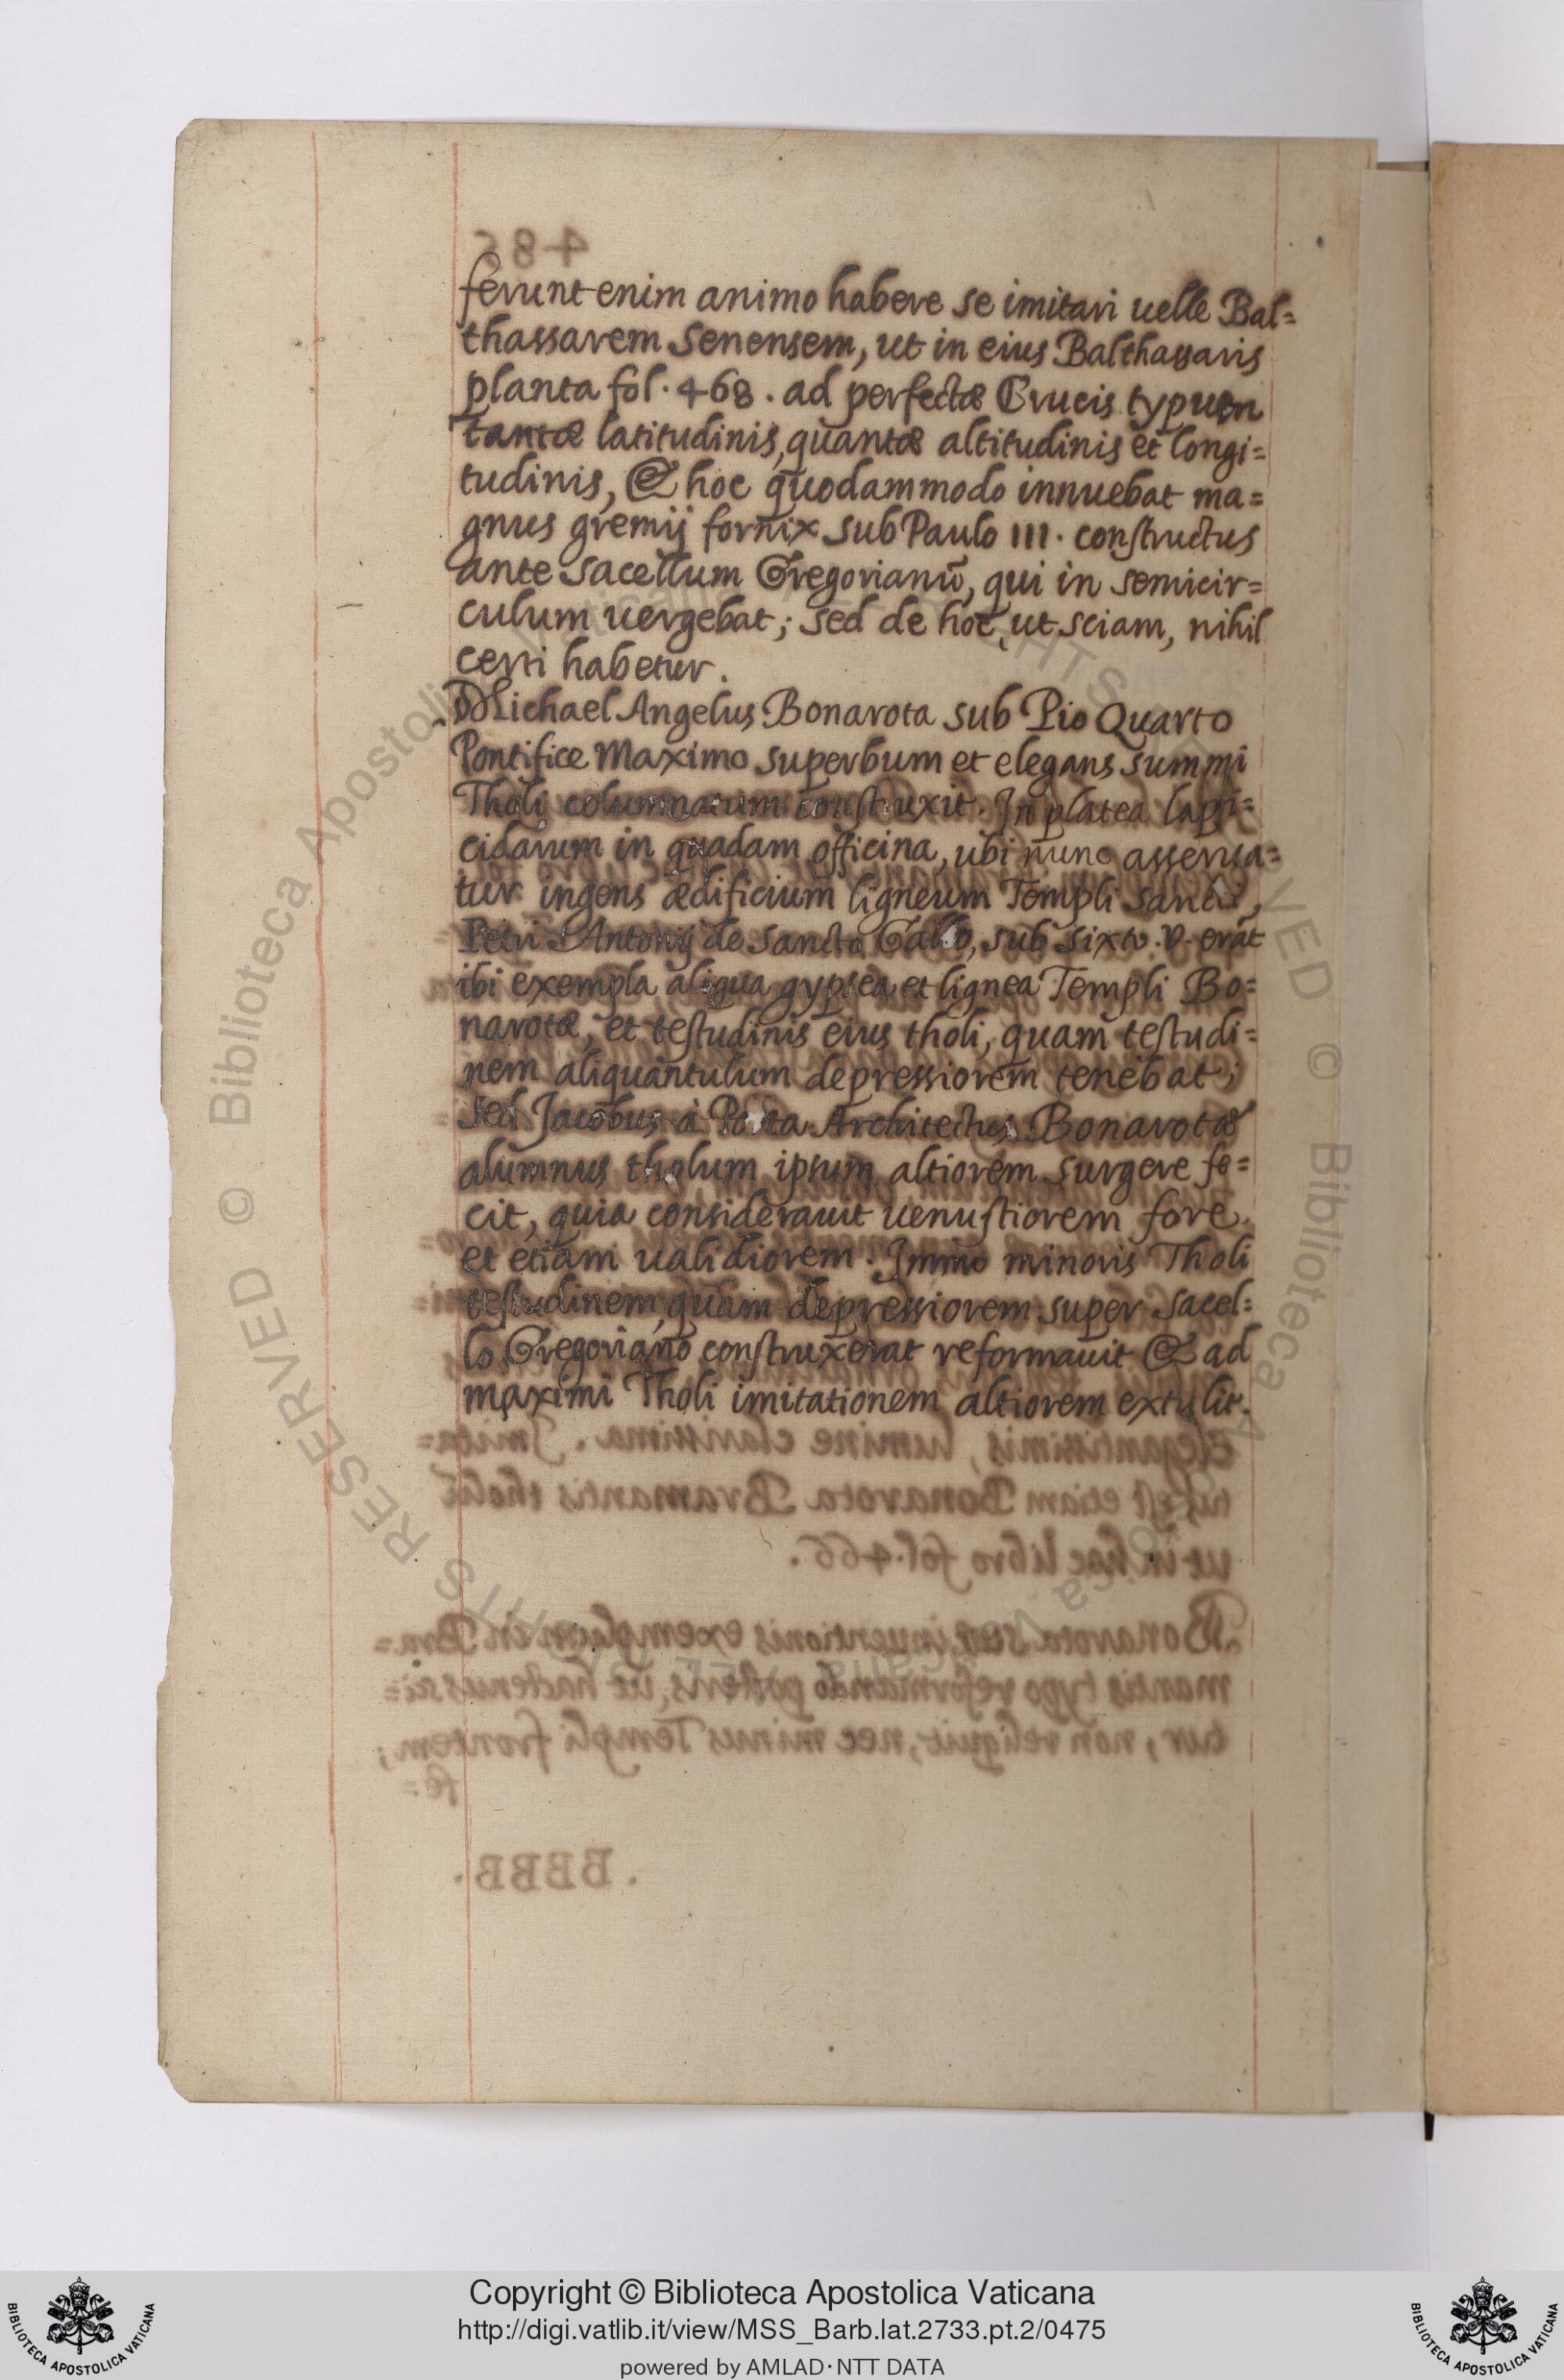 ferunt enim animo habere se imitari uelle Bal=
thassarem Senensem, ut in eius Balthassaris
planta fol. 468. ad perfectæ Crucis typum
tantæ latitudinis, quantæ altitudinis et longi=
tudinis, & hoc quodammodo innuebat ma=
gnus gremij fornix sub Paulo III. constructus
ante sacellum Gregorianũ, qui in semicir=
culum uergebat; sed de hoc, ut sciam, nihil
certi habetur.
Michael Angelus Bonarota sub Pio Quarto
Pontifice Maximo superbum et elegans summi
Tholi columnatum construxit. In platea lapi=
cidarum in quadam officina, ubi nunc asserua=
tur ingens ædificium ligneum Templi Sancti
Petri Antonij de Sancto Gallo, sub Sixto .V. erat
ibi exempla aliqua gypsea et lignea Templi Bo=
narotæ, et testudinis eius tholi, quam testudi=
nem aliquantulum depressiorem tenebat;
sed Jacobus à Porta Architectus Bonarotæ
alumnus tholum ipsum altiorem surgere fe=
cit, quia considerauit uenustiorem fore,
et etiam ualidiorem. Immo minoris Tholi
testudinem, quam depressiorem super Sacel=
lo Gregoriano construxerat reformauit & ad
maximi Tholi imitationem altiorem extulit.
Copyright © Biblioteca Apostolica Vaticana
http://digi.vatlib.it/view/MSS_Barb.lat.2733.pt.2/0475
powered by AMLAD·NTT DATA
BIBLIOTECA APOSTOLICA VATICANA
BIBLIOTECA APOSTOLICA VATICANA